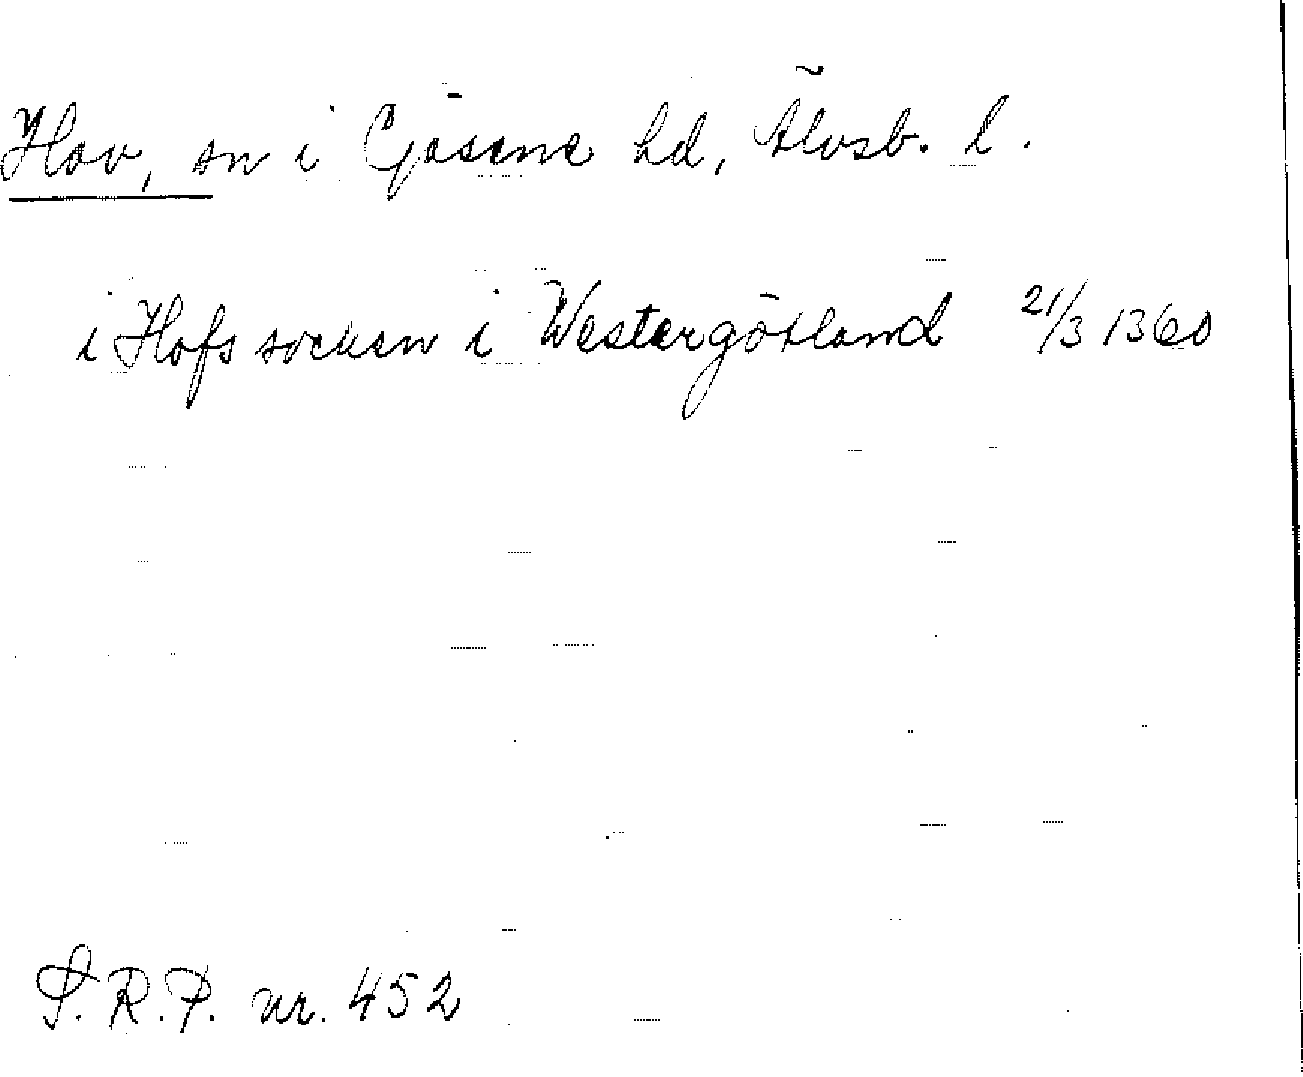 Hov, sn i Gäsene hd, Älvsb. l.
i Hofs socken i Westergötland 21/3 1360
S.R.P. nr. 452